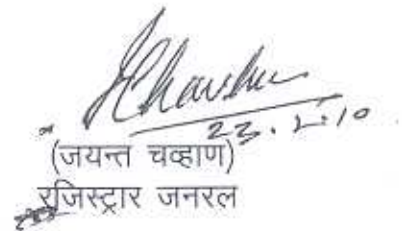 23.2.10
(जयन्त चव्हाण)
रजिस्ट्रार जनरल